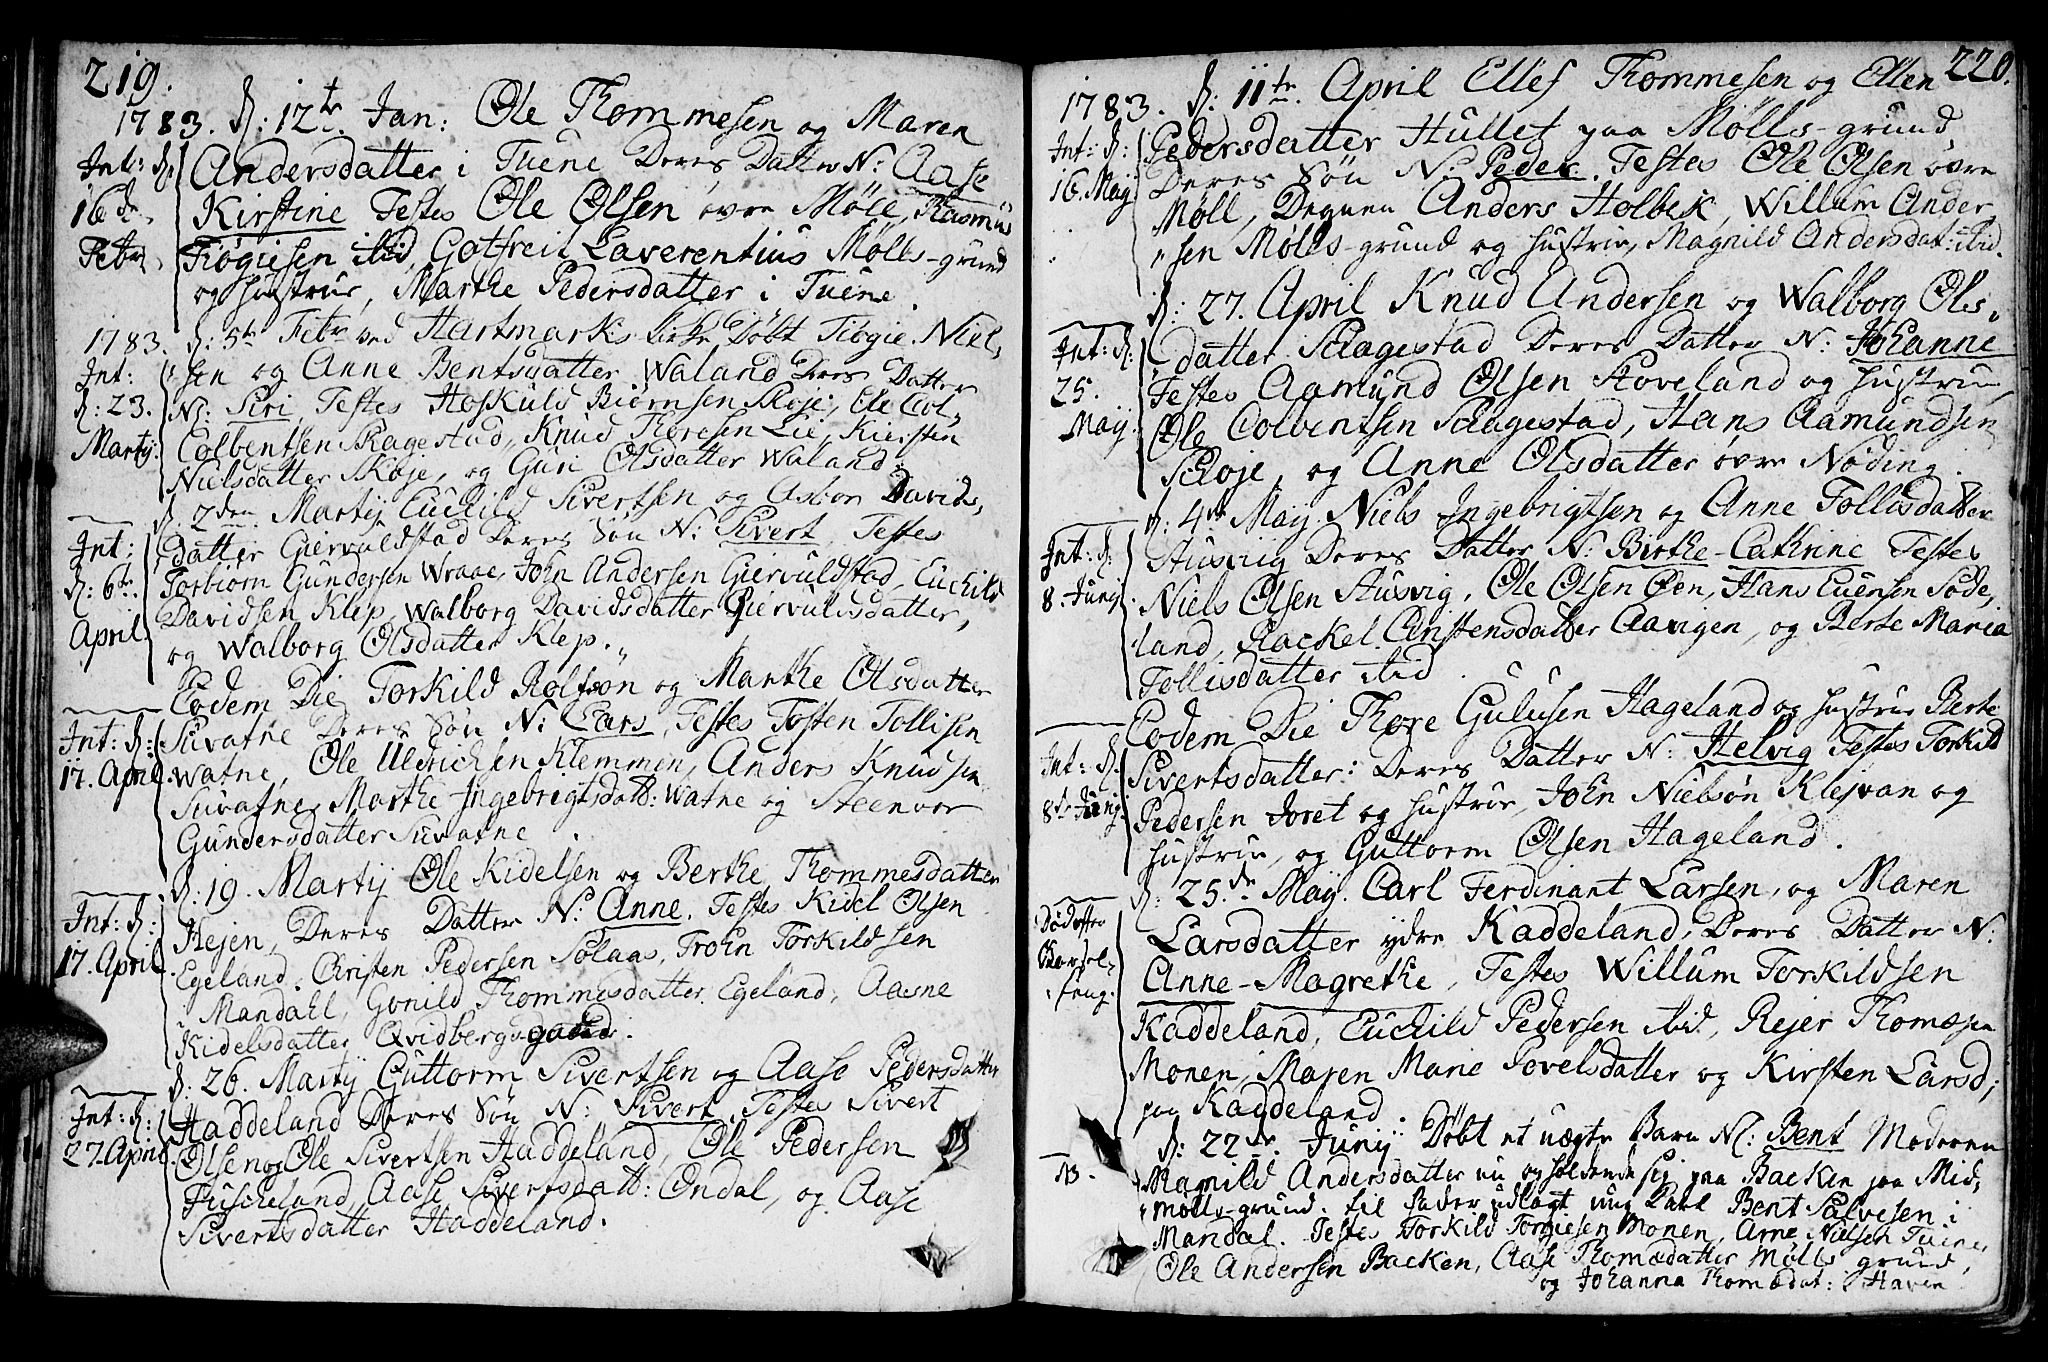 219.
1783. d: 12te. Jan: Ole Thommesen og Maren
Int: d: Andersdatter i Tuene Deres Datter N: Aase
16 d. Kirstine Testes Ole Olsen øvre Møll, Rasmüs
Febr. Tiøgiesen ibid, Gotfreit Laverentius Mølls-grund
og hustrue, Marthe Pedersdatter i Tuene.
1783. d: 5te Febr ved Hartmarks kirke Døbt Tiøgie Niel,
Int: sen og Anne Bentsdatter Waland Deres Datter
d: 23. N: Siri, Testes Hoskuld Biørnsen Skoje, Ole Col,
Martij. Colbentsen Skagestad, Knud Thoresen Lie, Kiersten
Nielsdatter Skoje, og Guri Olsdatter Waland.
d. 2den Martij Euchild Sivertsen og Asbor Davids,
Int: datter Giervuldstad Deres Søn N: Sivert, Testes
d: 6te. Torbiørn Gundersen Wraae, John Andersen Giervuldstad, Euchild
Davidsen Klep, Walborg Davidsdatter Giervulsdatter,
April og Walborg Olsdatter Klep.
Eodem Die Torkild Rolfsøn og Marthe Olsdatter
Int: d: Suvatne Deres Søn N: Lars, Testes Tosten Tollisen
17. April. Watne, Ole Uldrichsen Klemmen, Anders Knudsen
Suvatne, Marthe Ingebrigtsdatt: Watne og Steenvor
Gundersdatter Suvatne.
d: 19. Martij Ole Kidelsen og Berthe Thommesdatter
Int: d: Hejen, Deres Datter N: Anne. Testes Kidel Olsen
17. April. Egeland, Christen Pedersen Solaas, Trohn Torkildsen
Mandahl, Gonild Thommesdatter Egeland, Aasne
Kidelsdatter Qvidbergsgaded.
d: 26. Martij Guttorm Sivertsen og Aase Pedersdatter
Int: d: Haddeland Deres Søn N: Sivert, Testes Sivert
27. April. Olsen og Ole Sivertsen Haddeland, Ole Pedersen
Fuscheland, Aase Sivertsdatt: Øndal, og Aase
Sivertsdatter Haddeland.
220.
1783. d: 11te. April Ellef Thommesen og Ellen
Int: d: Pedersdatter Hullet paa Mølls-grund
16. Maij Deres Søn N: Peder. Testes Ole Olsen øvre
Møll, Degnen Anders Holbek, Willum Ander,
sen Mølls-grund og hustrue, Magnild Andersdat: ibid.
d: 27. April Knud Andersen og Walborg Ols,
Int: d: datter Skagestad Deres Datter N: Johanne
25. Testes Aamund Olsen Stoveland og hustrue,
Maij. Ole Colbentsen Skagestad, Hans Aamundsen
Skoje, og Anne Olsdatter øvre Nøding.
d: 4de Maij. Niels Ingebrigtsen og Anne Tollisdatter
Int: d: Husvig Deres Datter N: Birthe-Cathrine Testes
8. Junij. Niels Olsen Husvig, Ole Olsen Øen, Hans Euensen Søde,
land, Rackel Christensdatter Aavigen, og Berte Maria
Tollisdatter ibid.
Eodem Die Thore Gulusen Hageland og hustrue Berte
Int: d. Sivertsdatter: Deres Datter N: Helvig Testes Torkild
8te Junij. Pedersen Joret og hustrue, John Nielsøn Klejvan og
hustrue, og Guttorm Olsen Hageland.
d: 25de. Maij. Carl Ferdinant Larsen, og Maren
Død efter Larsdatter ydre Kaddeland, Deres Datter N:
Barsel, Anne-Magrethe, Testes Willum Torkildsen
seng. Kaddeland, Euchild Pedersen ibid, Rejer Thomæsen
Monen, Maren Marie Povelsdatter og Kirsten Larsd;
paa Kaddeland.
d: 22de. Junij Døbt et uægte Barn N: Bent Moderen
NB. Mamild Andersdatter nu opholdende sig paa Backen paa Mid,
mølls-grund. til fader udlagt ung Karl Bent Salvesen i
Mandal. Testes Torkild Torgiesen Monen, Arne Nielsen Tuene,
Ole Andersen Backen, Aase Thomædatter Mølls grund,
og Johanna Thomædat: i Haven